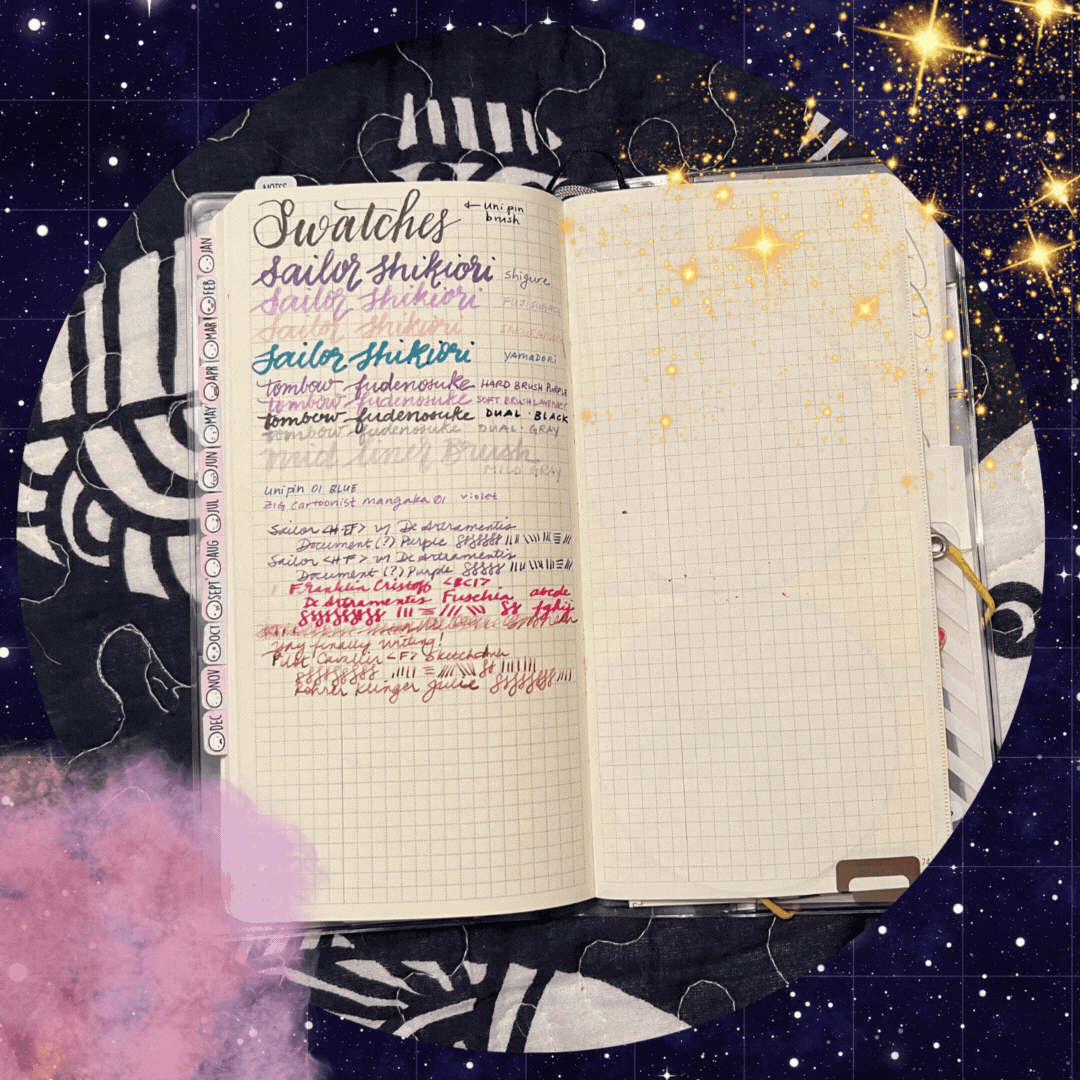 NOTES
Swatches ← uni pin
brush
Sailor Shikiori shigure
Sailor Shikiori
Sailor Shikiori
Sailor Shikiori yamadori
tombow fudenosuke HARD BRUSH PURPLE
tombow fudenosuke SOFT BRUSH LAVENDER
tombow fudenosuke DUAL · BLACK
tombow fudenosuke DUAL · GRAY
mild liner Brush
MILD GRAY
uni pin 01 BLUE
ZIG cartoonist mangaka 01 violet
Sailor <HF> w/ De Artramentis
Document (?) Purple
Sailor <HF> w/ De Artramentis
Document (?) Purple
Franklin Cristoff
De Artramentis Fuschia abcde
fghij
Yay finally writing!
Pilot Cavalier <F> Sketch Ink
Rohrer Klinger
JAN
FEB
MAR
APR
MAY
JUN
JUL
AUG
SEPT
OCT
NOV
DEC